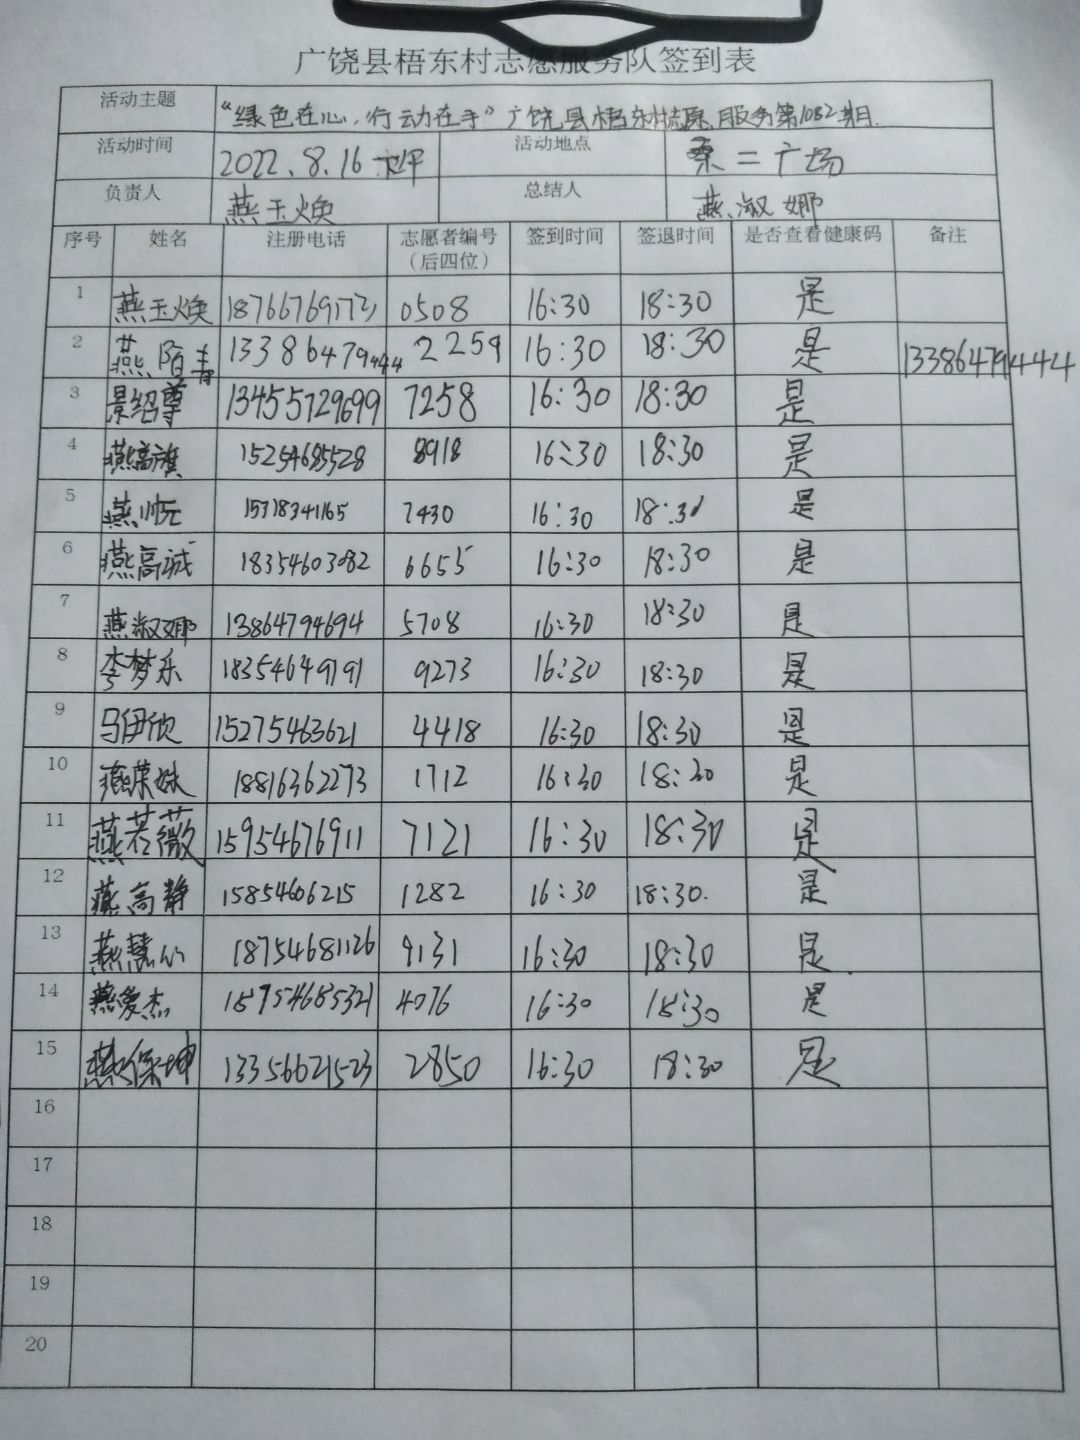 广饶县梧东村志愿服务队签到表
活动主题 “绿色在心,行动在手”广饶县梧东村志愿服务第1082期.
活动时间 2022.8.16 活动地点 二广场
负责人 燕玉焕 总结人 燕淑娜
序号 姓名 注册电话 志愿者编号 签到时间 签退时间 是否查看健康码 备注
(后四位)
1 燕玉焕 18766769173 0508 16:30 18:30 是
2 燕陌青 13386479444 2259 16:30 18:30 是 13386479444
3 景绍尊 13455729699 7258 16:30 18:30 是
4 燕高旗 15254685528 8918 16:30 18:30 是
5 燕帅元 15318341165 7430 16:30 18:30 是
6 燕高诚 18354603082 6655 16:30 18:30 是
7 燕淑娜 13864794694 5708 16:30 18:30 是
8 李梦乐 18354649791 9273 16:30 18:30 是
9 马伊欣 15275463621 4418 16:30 18:30 是
10 燕荣妹 18816362273 1712 16:30 18:30 是
11 燕若薇 15954676911 7121 16:30 18:30 是
12 燕高静 15854606215 1282 16:30 18:30. 是
13 燕慧心 18754681126 9131 16:30 18:30 是.
14 燕爱杰 18954685321 4076 16:30 18:30 是
15 燕保坤 13356621523 2850 16:30 18:30 是
16
17
18
19
20